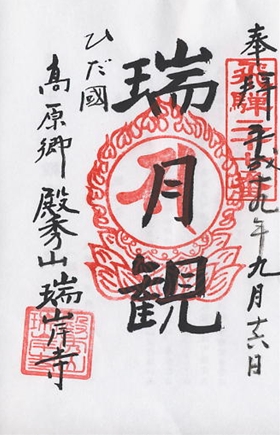 奉拝 平成十九年九月十六日
瑞月観
ひだ國
高原郷 殿秀山 瑞岸寺